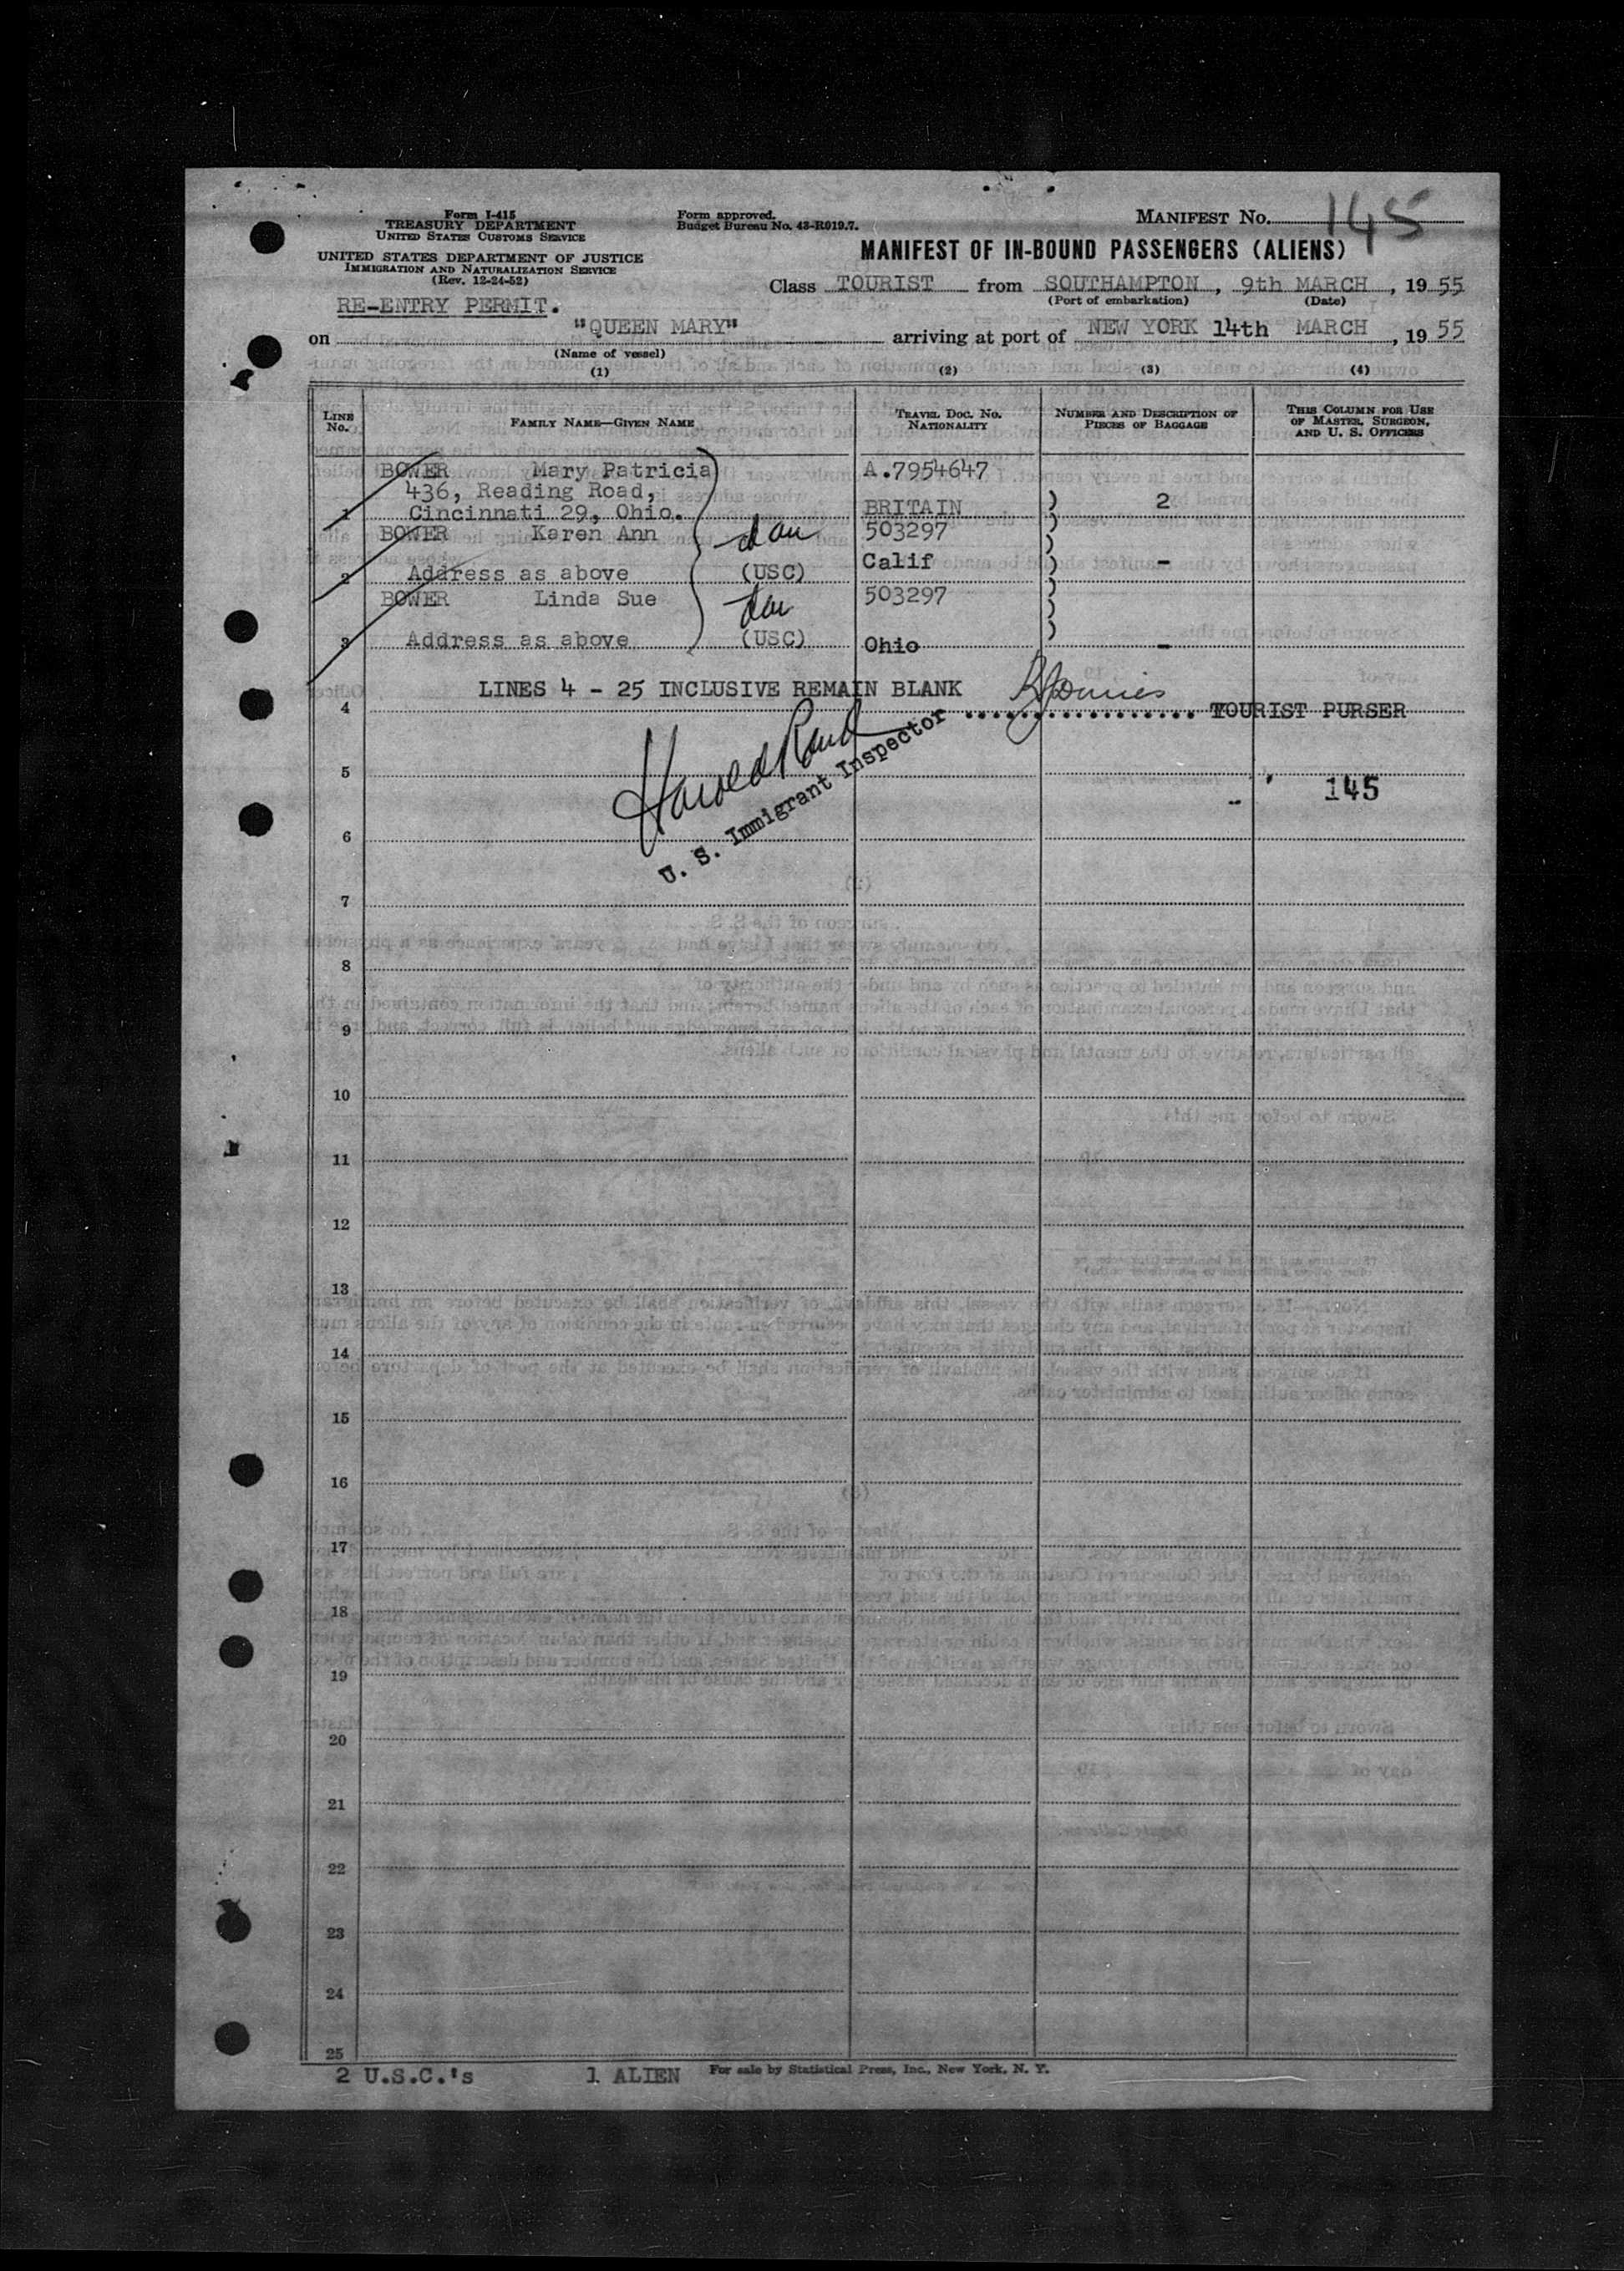 Form I-415
TREASURY DEPARTMENT
UNITED STATES CUSTOMS SERVICE
UNITED STATES DEPARTMENT OF JUSTICE
IMMIGRATION AND NATURALIZATION SERVICE
(Rev. 12-24-52)
Form approved.
Budget Bureau No. 43-R019.7.
MANIFEST NO. 145
MANIFEST OF IN-BOUND PASSENGERS (ALIENS)
Class TOURIST from SOUTHAMPTON, 9th MARCH, 1955
(Port of embarkation) (Date)
RE-ENTRY PERMIT.
on "QUEEN MARY" arriving at port of NEW YORK 14th MARCH, 1955
(Name of vessel)
(1) (2) (3) (4)
LINE No. FAMILY NAME—GIVEN NAME TRAVEL DOC. NO. NATIONALITY NUMBER AND DESCRIPTION OF PIECES OF BAGGAGE THIS COLUMN FOR USE OF MASTER, SURGEON, AND U. S. OFFICERS
BOWER Mary Patricia A.7954647
436, Reading Road,
1 Cincinnati 29, Ohio. BRITAIN ) 2
BOWER Karen Ann dau 503297 )
2 Address as above (USC) Calif ) -
BOWER Linda Sue dau 503297 )
3 Address as above (USC) Ohio ) -
LINES 4 - 25 INCLUSIVE REMAIN BLANK
4 ................. TOURIST PURSER
Harold Rand
U. S. Immigrant Inspector
5
145
6
7
8
9
10
11
12
13
14
15
16
17
18
19
20
21
22
23
24
25
2 U.S.C.'s 1 ALIEN For sale by Statistical Press, Inc., New York, N. Y.